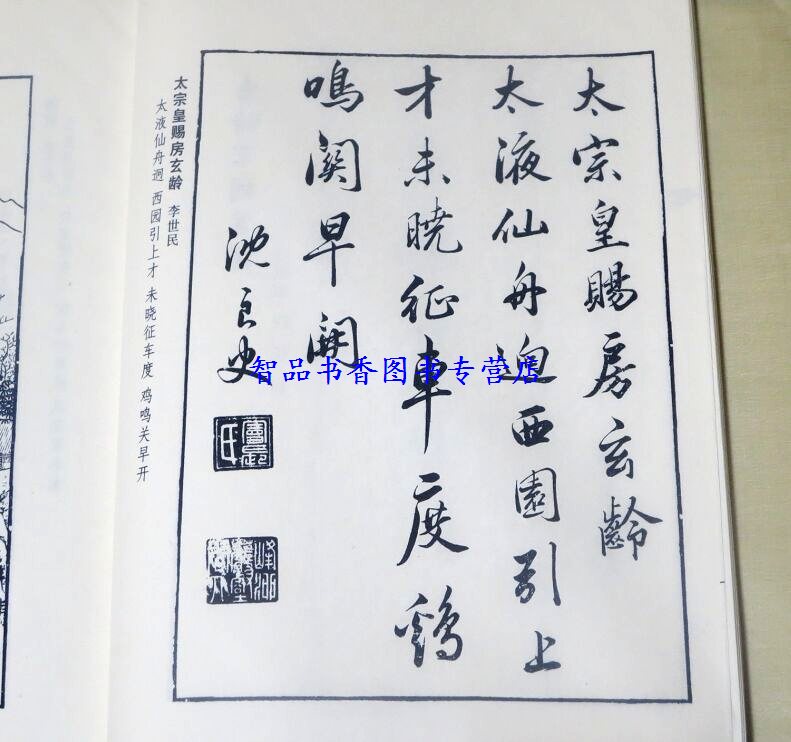 太宗皇賜房玄齡
太液仙舟迥西園引上
才未曉征車度鷄
鳴關早開
沈良史
太宗皇赐房玄龄 李世民
太液仙舟迥 西园引上才 未晓征车度 鸡鸣关早开
智品书香图书专营店